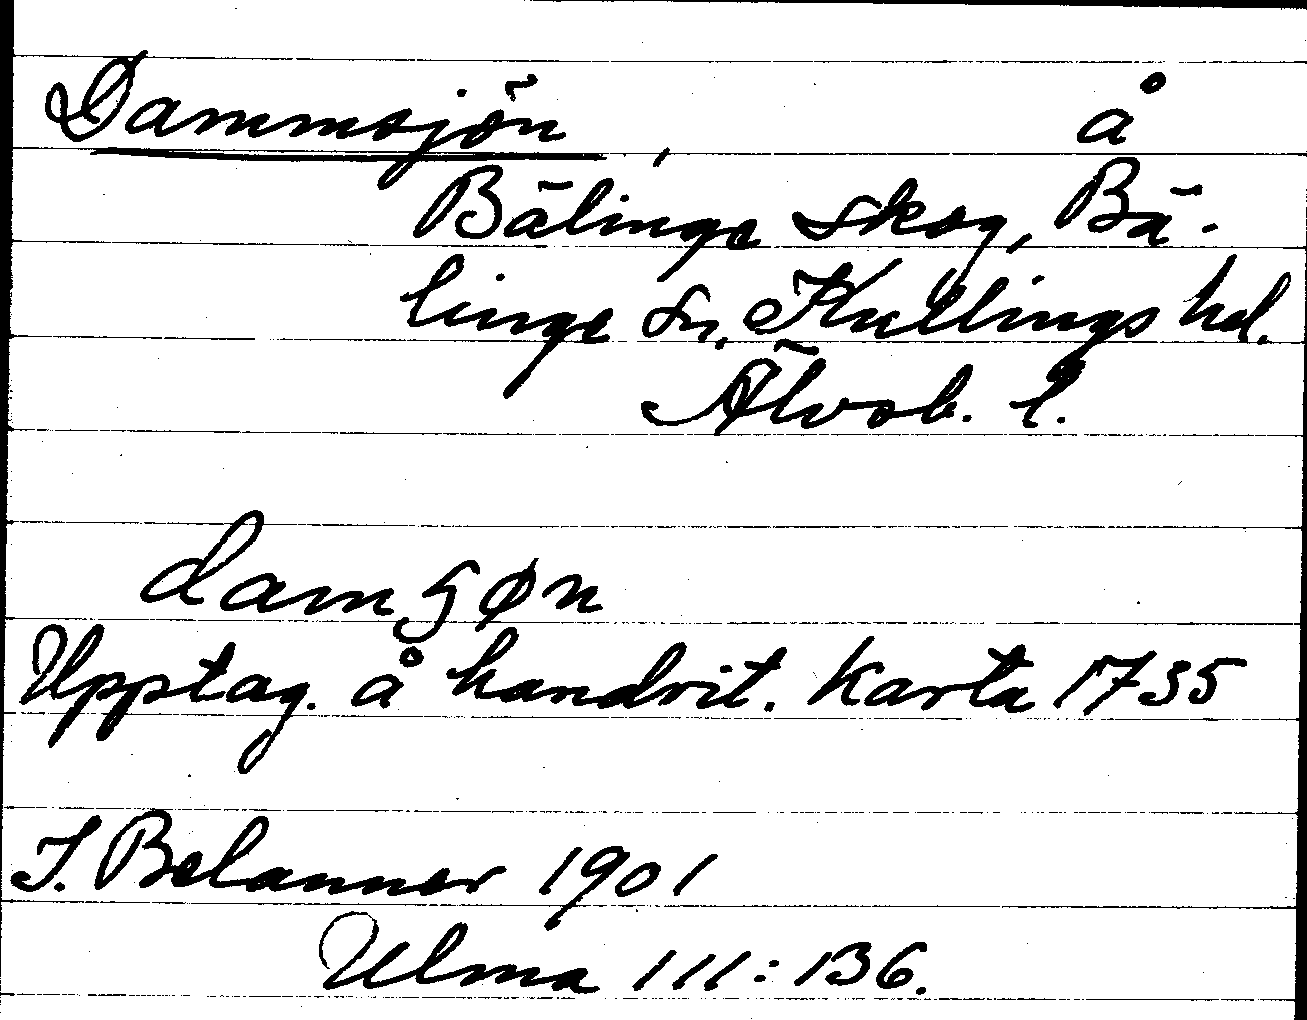 Dammsjön, å
Bälinge skog, Bä-
linge sn, Kullings hd.
Älvsb. l.
damʒøn
Upptag. å handrit. karta 1735
J. Belanner 1901
Ulma 111:136.